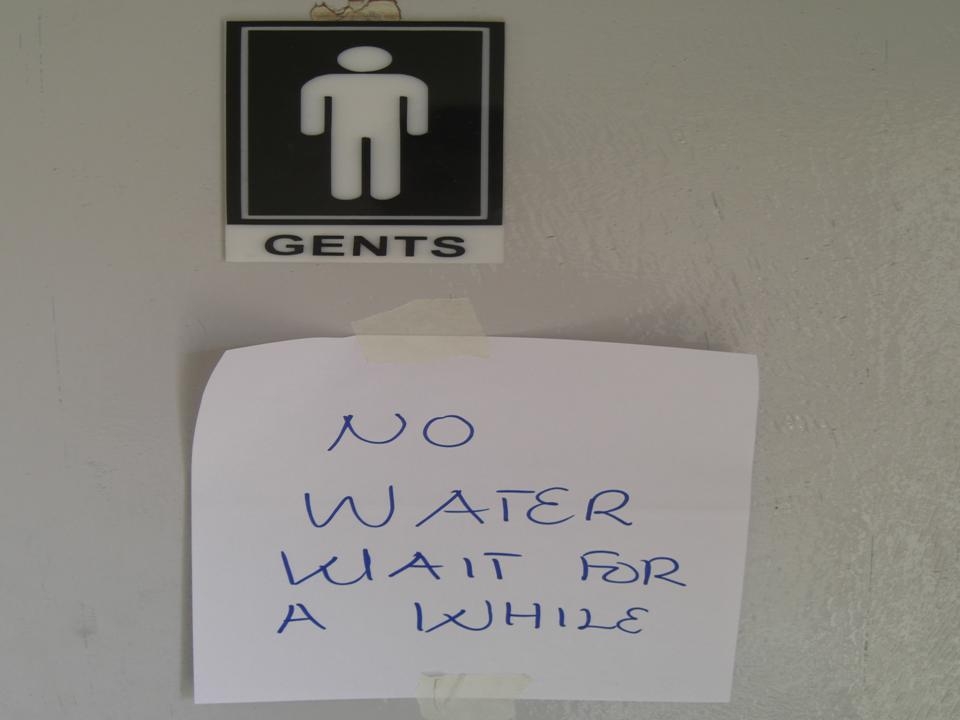 GENTS
NO
WATER
WAIT FOR
A WHILE